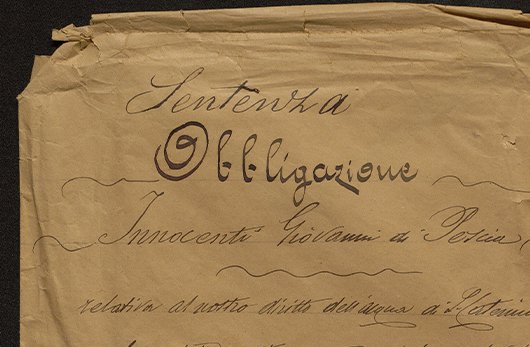 Sentenza
Obbligazione
Innocenti Giovanni di Pescia
relativa al nostro diritto dell'acqua di S. Caterina